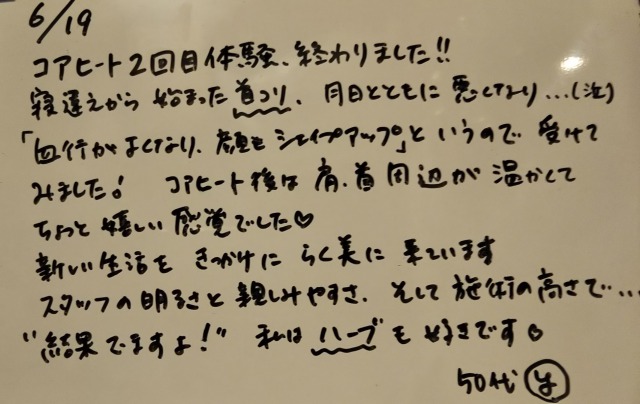 6/19
コアヒート2回目体験、終わりました!!
寝違えから始まった首コリ、月日とともに悪くなり…(泣)
「血行がよくなり、顔もシェイプアップ」というので受けて
みました! コアヒート後は肩、首周辺が温かくて
ちょっと嬉しい感覚でした♡
新しい生活をきっかけにらく美に来ています
スタッフの明るさと親しみやすさ、そして施術の高さで…
"結果でますよ!" 私はハーブも好きです♡
50代 y